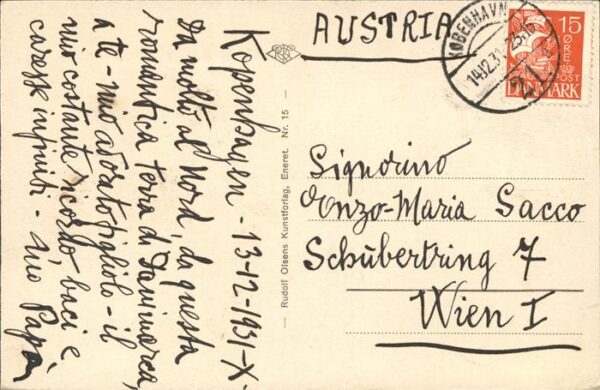 Kopenhagen - 13-12-1931-X.
Da molto al Nord, da questa
romantica terra di Danimarca,
a te - mio adorato figliolo - il
mio costante ricordo baci e
carezze infiniti - tuo Papà
— Rudolf Olsens Kunstforlag, Eneret. Nr. 15 —
AUSTRIA
KØBENHAVN
14.12.31
15
ØRE
POST
DANMARK
Signorino
Enzo-Maria Sacco
Schubertring 7
Wien I